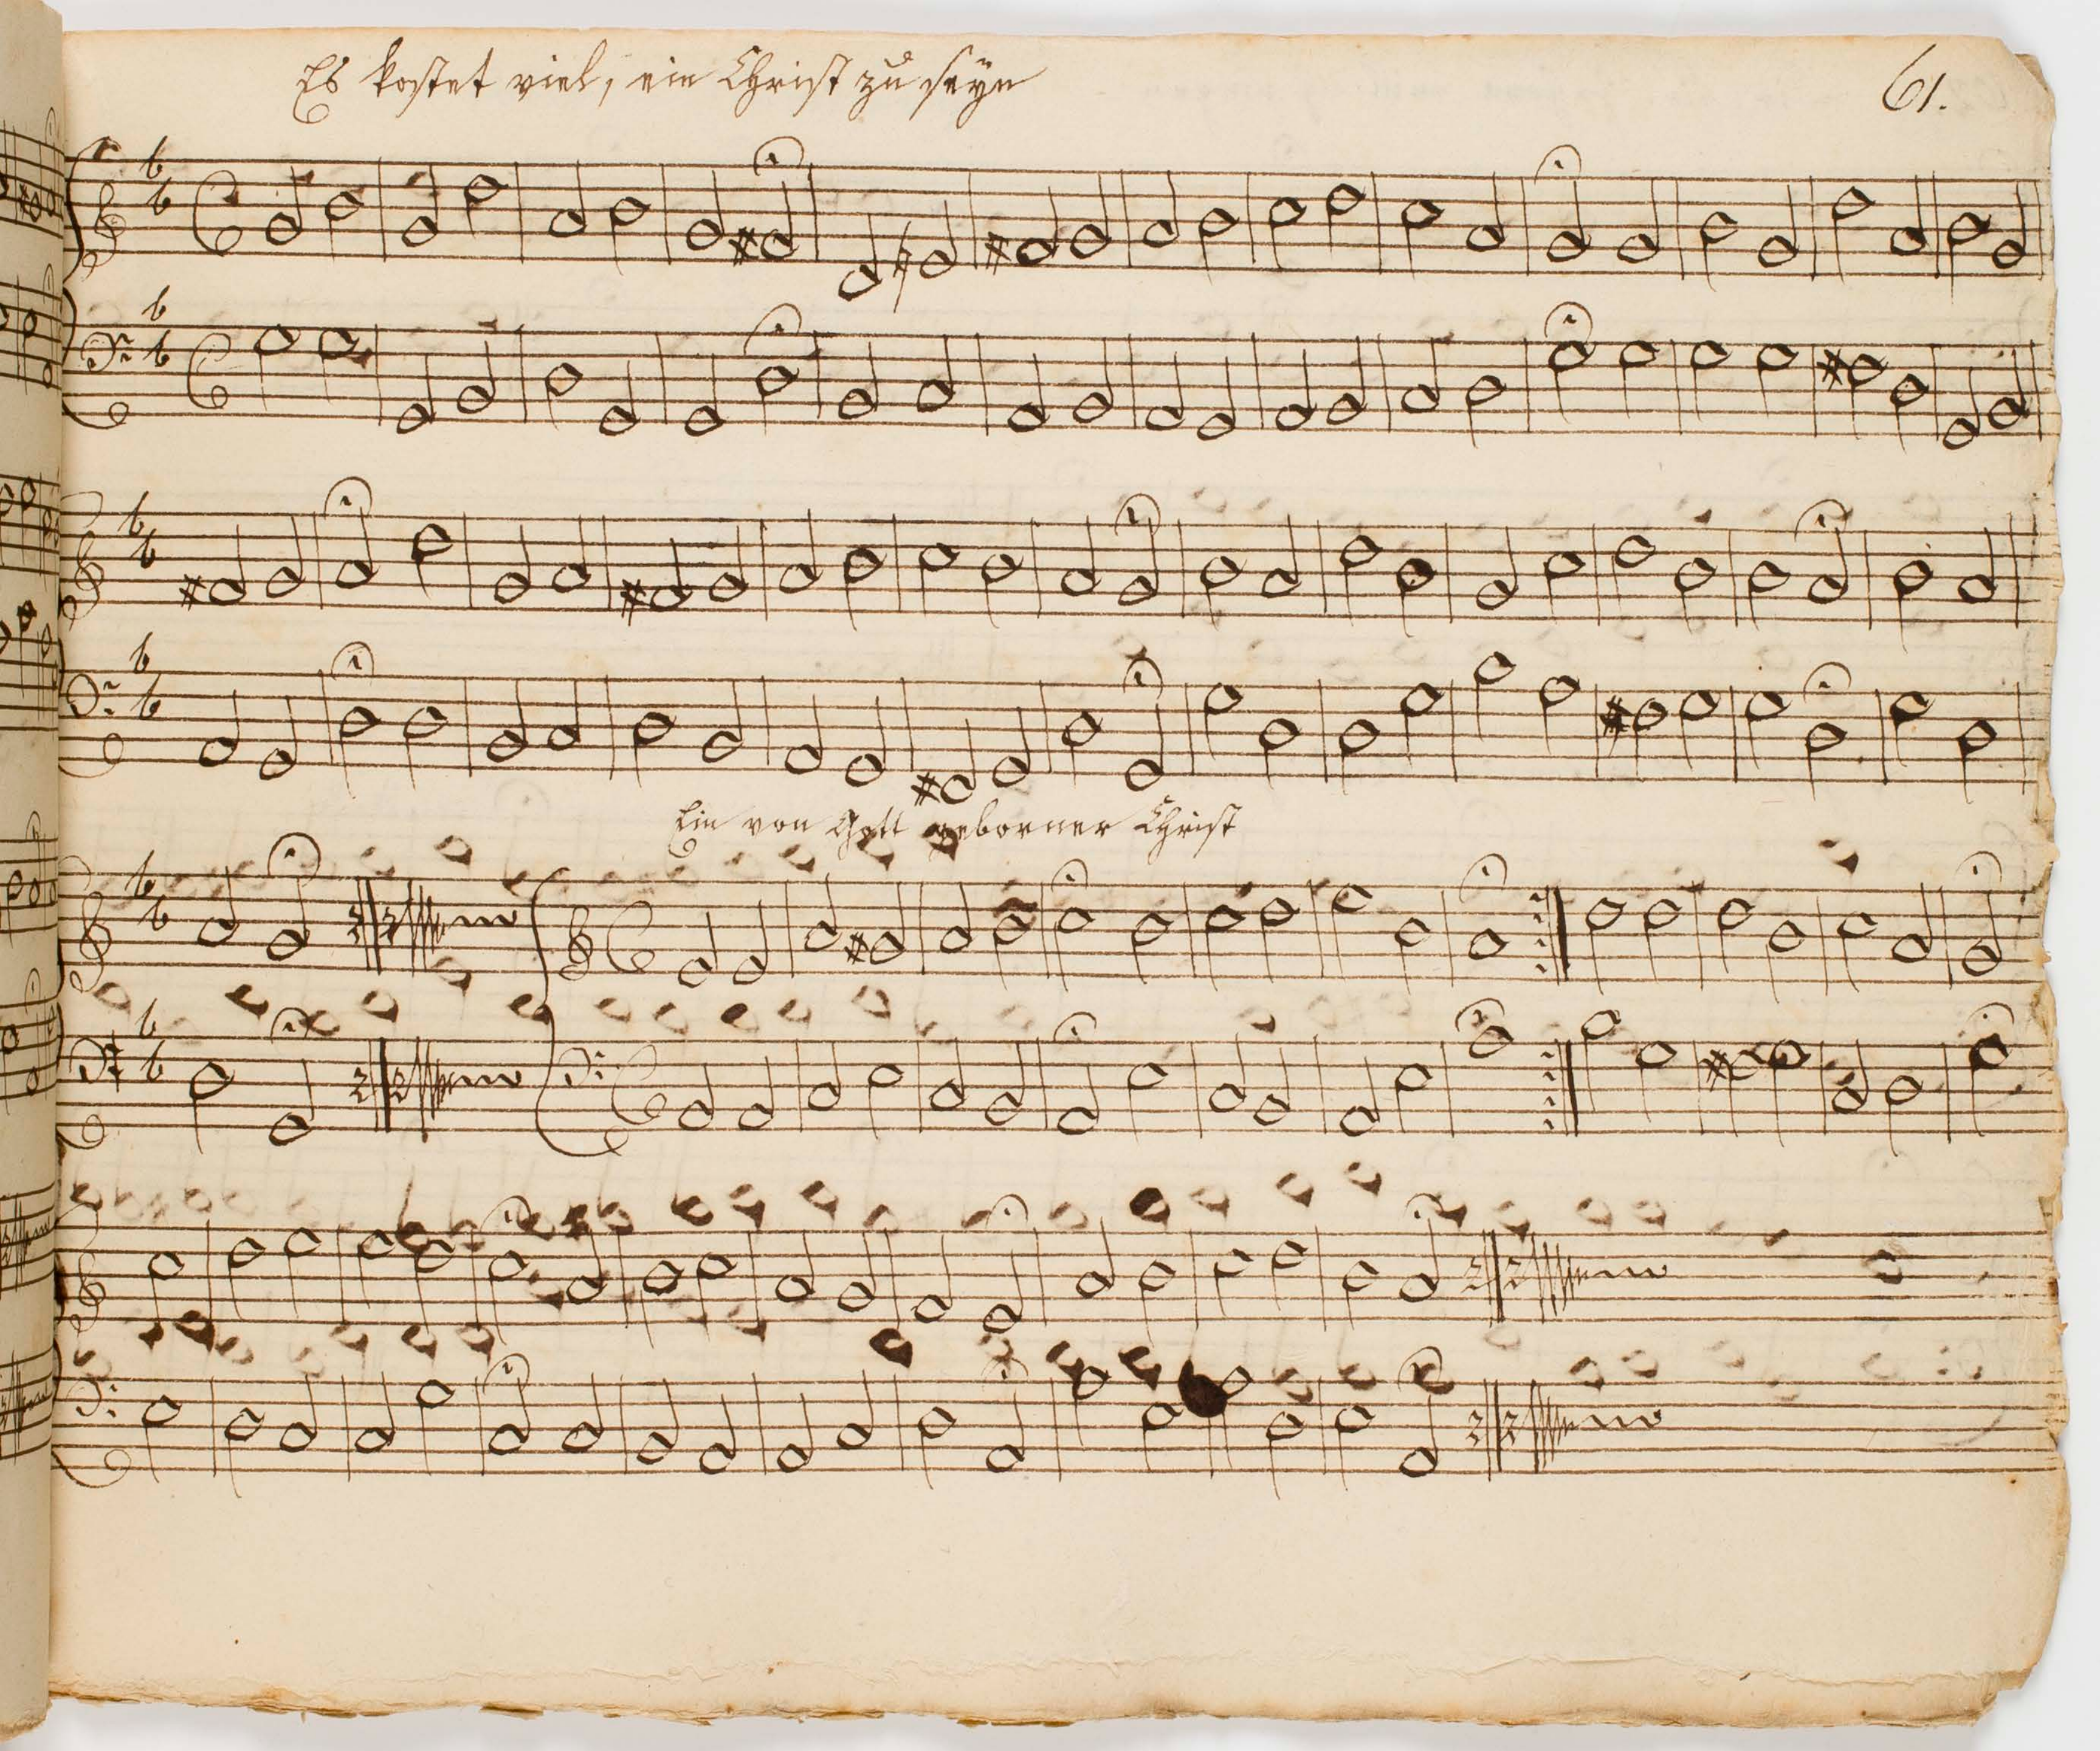 Es kostet viel, ein Christ zu seÿn
61.
Ein von Gott geborner Christ